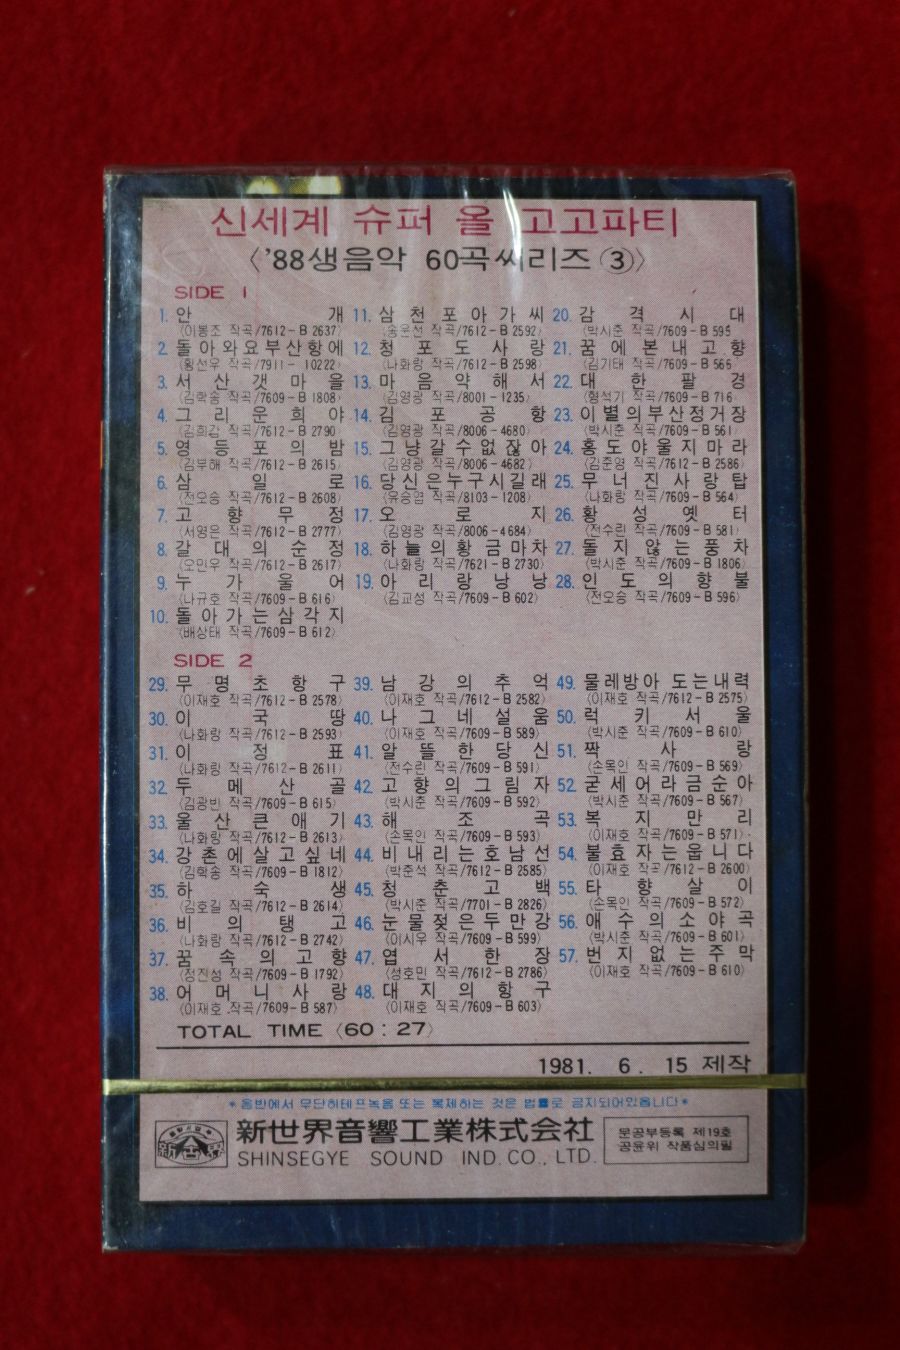 신세계 슈퍼 올 고고파티
〈'88생음악 60곡씨리즈 ③〉
SIDE 1
1. 안 개
〈이봉조 작곡/7612-B 2637〉
2. 돌아와요부산항에
〈황선우 작곡/7911- 10222〉
3. 서 산 갯 마 을
〈김학송 작곡/7609-B 1808〉
4. 그 리 운 희 야
〈김희갑 작곡/7612-B 2790〉
5. 영 등 포 의 밤
〈김부해 작곡/7612-B 2615〉
6. 삼 일 로
〈전오승 작곡/7612-B 2608〉
7. 고 향 무 정
〈서영은 작곡/7612-B 2777〉
8. 갈 대 의 순 정
〈오민우 작곡/7612-B 2617〉
9. 누 가 울 어
〈나규호 작곡/7609-B 616〉
10. 돌 아 가 는 삼 각 지
〈배상태 작곡/7609-B 612〉
11. 삼 천 포 아 가 씨
〈송운선 작곡/7612-B 2592〉
12. 청 포 도 사 랑
〈나화랑 작곡/7612-B 2598〉
13. 마 음 약 해 서
〈김영광 작곡/8001-1235〉
14. 김 포 공 항
〈김영광 작곡/8006-4680〉
15. 그냥갈수없잖아
〈김영광 작곡/8006-4682〉
16. 당신은누구시길래
〈유승엽 작곡/8103-1208〉
17. 오 로 지
〈김영광 작곡/8006-4684〉
18. 하늘의황금마차
〈나화랑 작곡/7621-B 2730〉
19. 아 리 랑 낭 낭
〈김교성 작곡/7609-B 602〉
20. 감 격 시 대
〈박시준 작곡/7609-B 595
21. 꿈에본내고향
〈김기태 작곡/7609-B 566
22. 대 한 팔 경
〈형석기 작곡/7609-B 716〉
23. 이별의부산정거장
〈박시준 작곡/7609-B 561〉
24. 홍도야울지마라
〈김준영 작곡/7612-B 2586〉
25. 무너진사랑탑
〈나화랑 작곡/7609-B 564〉
26. 황 성 옛 터
〈전수린 작곡/7609-B 581〉
27. 돌 지 않 는 풍 차
〈박시준 작곡/7609-B 1806〉
28. 인 도 의 향 불
〈전오승 작곡/7609-B 596〉
SIDE 2
29. 무 명 초 항 구
〈이재호 작곡/7612-B 2578〉
30. 이 국 땅
〈나화랑 작곡/7612-B 2593〉
31. 이 정 표
〈나화랑 작곡/7612-B 2611〉
32. 두 메 산 골
〈김광빈 작곡/7609-B 615〉
33. 울 산 큰 애 기
〈나화랑 작곡/7612-B 2613〉
34. 강촌에살고싶네
〈김학송 작곡/7609-B 1812〉
35. 하 숙 생
〈김호길 작곡/7612-B 2614〉
36. 비 의 탱 고
〈나화랑 작곡/7612-B 2742〉
37. 꿈 속 의 고 향
〈정진성 작곡/7609-B 1792〉
38. 어 머 니 사 랑
〈이재호 작곡/7609-B 587〉
39. 남 강 의 추 억
〈이재호 작곡/7612-B 2582〉
40. 나 그 네 설 움
〈이재호 작곡/7609-B 589〉
41. 알 뜰 한 당 신
〈전수린 작곡/7609-B 591〉
42. 고향의그림자
〈박시준 작곡/7609-B 592〉
43. 해 조 곡
〈손목인 작곡/7609-B 593〉
44. 비내리는호남선
〈박준석 작곡/7612-B 2585〉
45. 청 춘 고 백
〈박시준 작곡/7701-B 2826〉
46. 눈물젖은두만강
〈이시우 작곡/7609-B 599〉
47. 엽 서 한 장
〈성호민 작곡/7612-B 2786〉
48. 대 지 의 항 구
〈이재호 작곡/7609-B 603〉
49. 물레방아 도는내력
〈이재호 작곡/7612-B 2575〉
50. 럭 키 서 울
〈박시준 작곡/7609-B 610〉
51. 짝 사 랑
〈손목인 작곡/7609-B 569〉
52. 굳세어라금순아
〈박시준 작곡/7609-B 567〉
53. 복 지 만 리
〈이재호 작곡/7609-B 571〉
54. 불효자는웁니다
〈이재호 작곡/7612-B 2600〉
55. 타 향 살 이
〈손목인 작곡/7609-B 572〉
56. 애수의소야곡
〈박시준 작곡/7609-B 601〉
57. 번지없는주막
〈이재호 작곡/7609-B 610〉
TOTAL TIME 〈60 : 27〉
1981. 6. 15 제작
*음반에서 무단히테프녹음 또는 복제하는 것은 법률로 금지되어있읍니다*
新世界音響工業株式会社
SHINSEGYE SOUND IND. CO., LTD.
문공부등록 제19호
공윤위 작품심의필